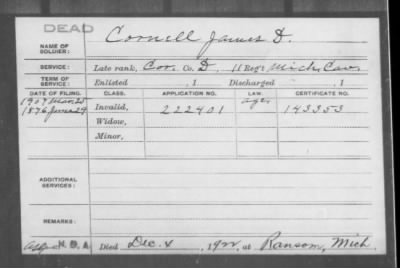 DEAD
NAME OF SOLDIER: Cornell James D.
SERVICE: Late rank, Cor. Co. D, 11 Reg't Mich. Cav.
TERM OF SERVICE: Enlisted , 1 Discharged , 1
DATE OF FILING. CLASS. APPLICATION NO. LAW. CERTIFICATE NO.
1907 Mar 25 age
1876 June 29 Invalid, 222401 143353
Widow,
Minor,
ADDITIONAL SERVICES:
REMARKS:
Died Dec. , 19 , at Ransom, Mich.